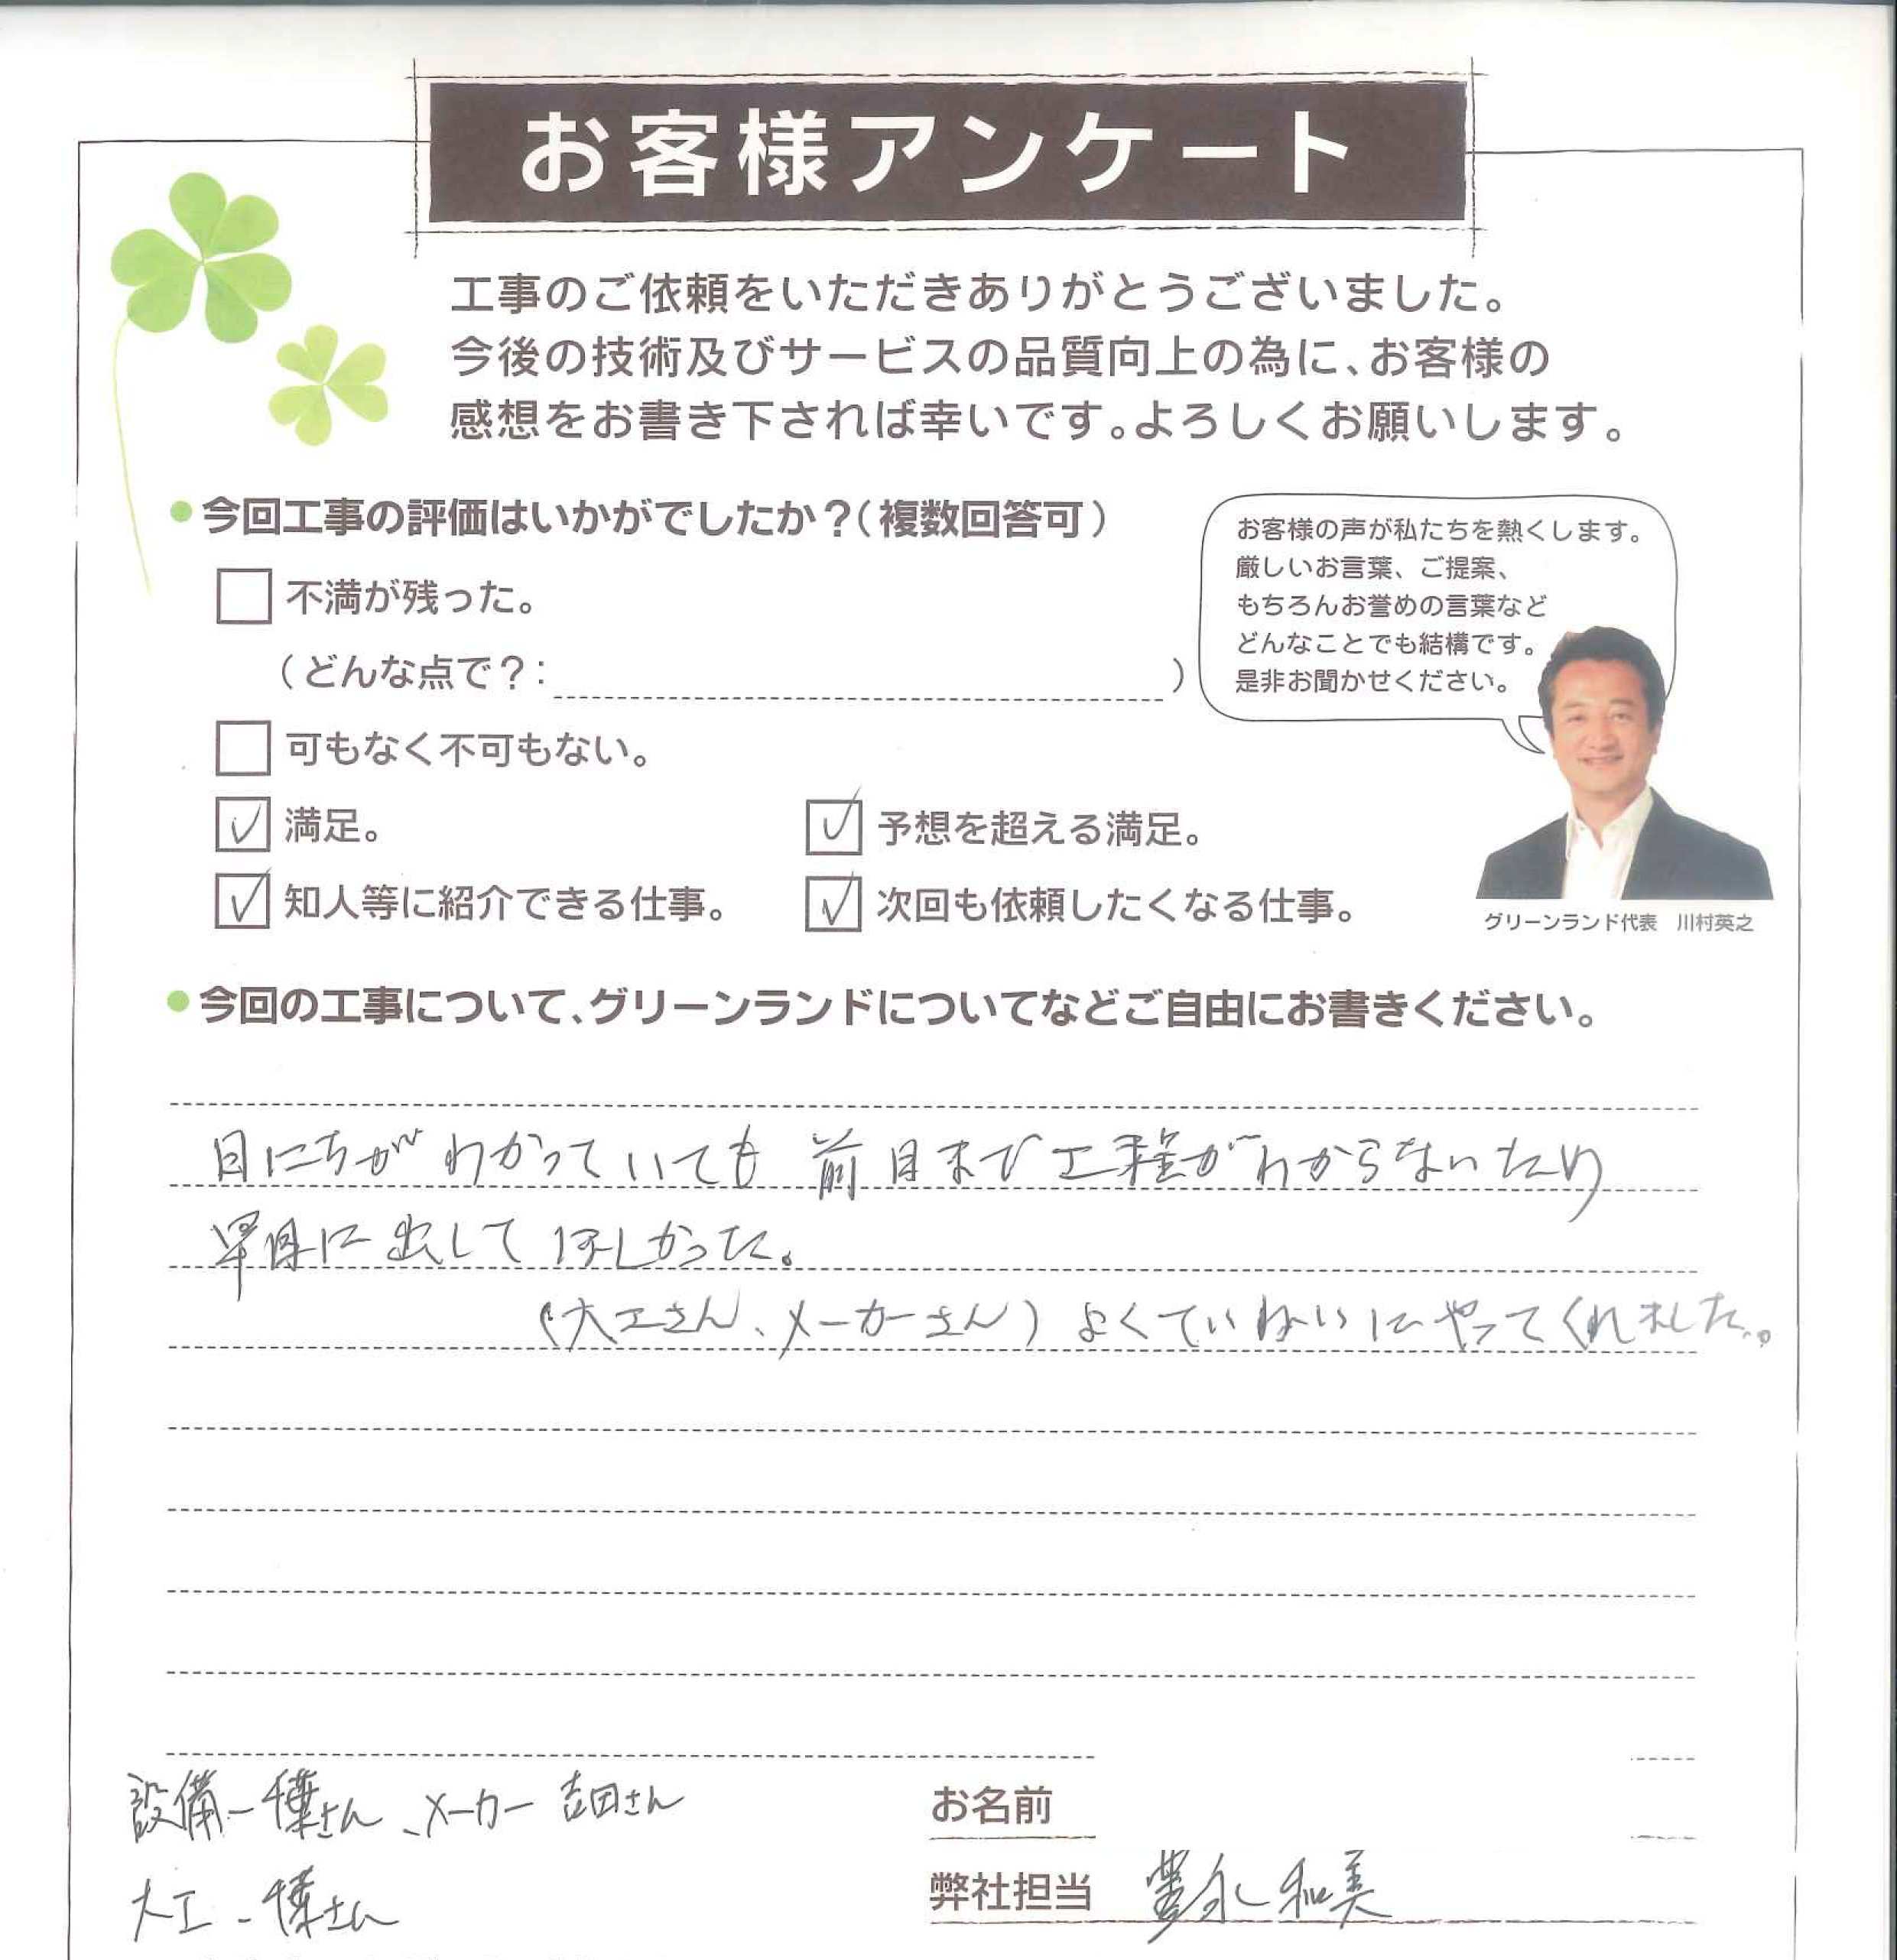 お客様アンケート
工事のご依頼をいただきありがとうございました。
今後の技術及びサービスの品質向上の為に、お客様の
感想をお書き下されば幸いです。よろしくお願いします。
●今回工事の評価はいかがでしたか？（複数回答可）
不満が残った。
（どんな点で？： ）
可もなく不可もない。
満足。
予想を超える満足。
知人等に紹介できる仕事。
次回も依頼したくなる仕事。
お客様の声が私たちを熱くします。
厳しいお言葉、ご提案、
もちろんお誉めの言葉など
どんなことでも結構です。
是非お聞かせください。
グリーンランド代表 川村英之
●今回の工事について、グリーンランドについてなどご自由にお書きください。
日にちがわかっていても前日まで工程がわからないたり
早目に出してほしかった。
（大工さん、メーカーさん）よくていねいにやってくれました。
設備ー さん、メーカー 吉田さん
大工ー さん
お名前
弊社担当 永 和美